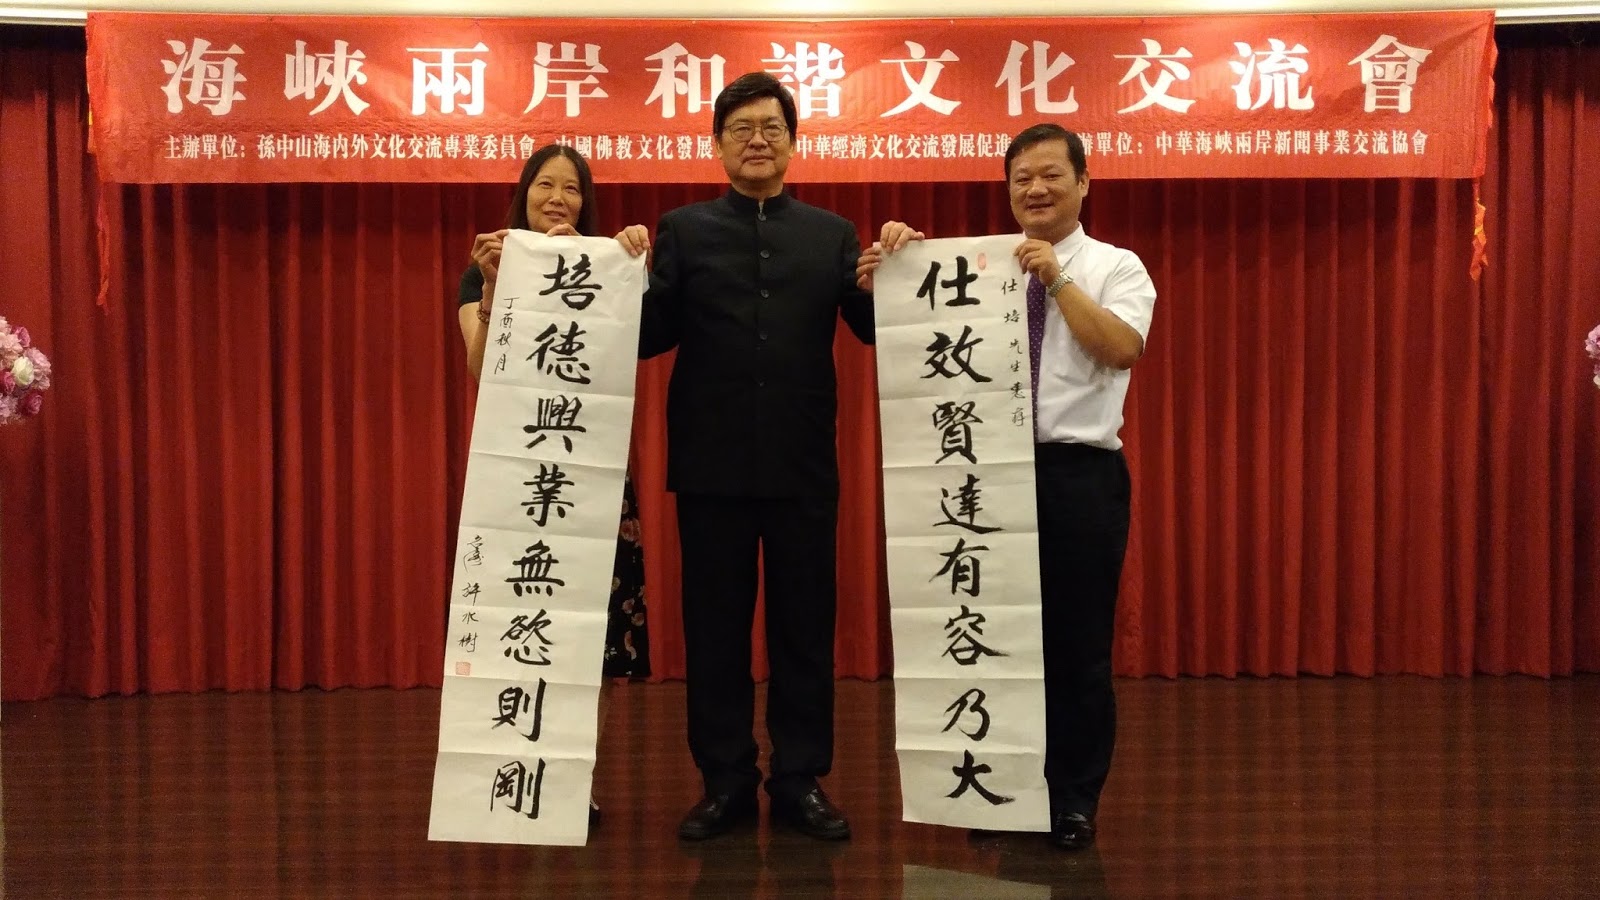 海峽兩岸和諧文化交流會
主辦單位：孫中山海内外文化交流專業委員會 中國佛教文化發展 中華經濟文化交流發展促進 辦單位：中華海峽兩岸新聞事業交流協會
仕培先生惠存
仕效賢達有容乃大
培德興業無慾則剛
丁酉秋月
臺灣 許水樹